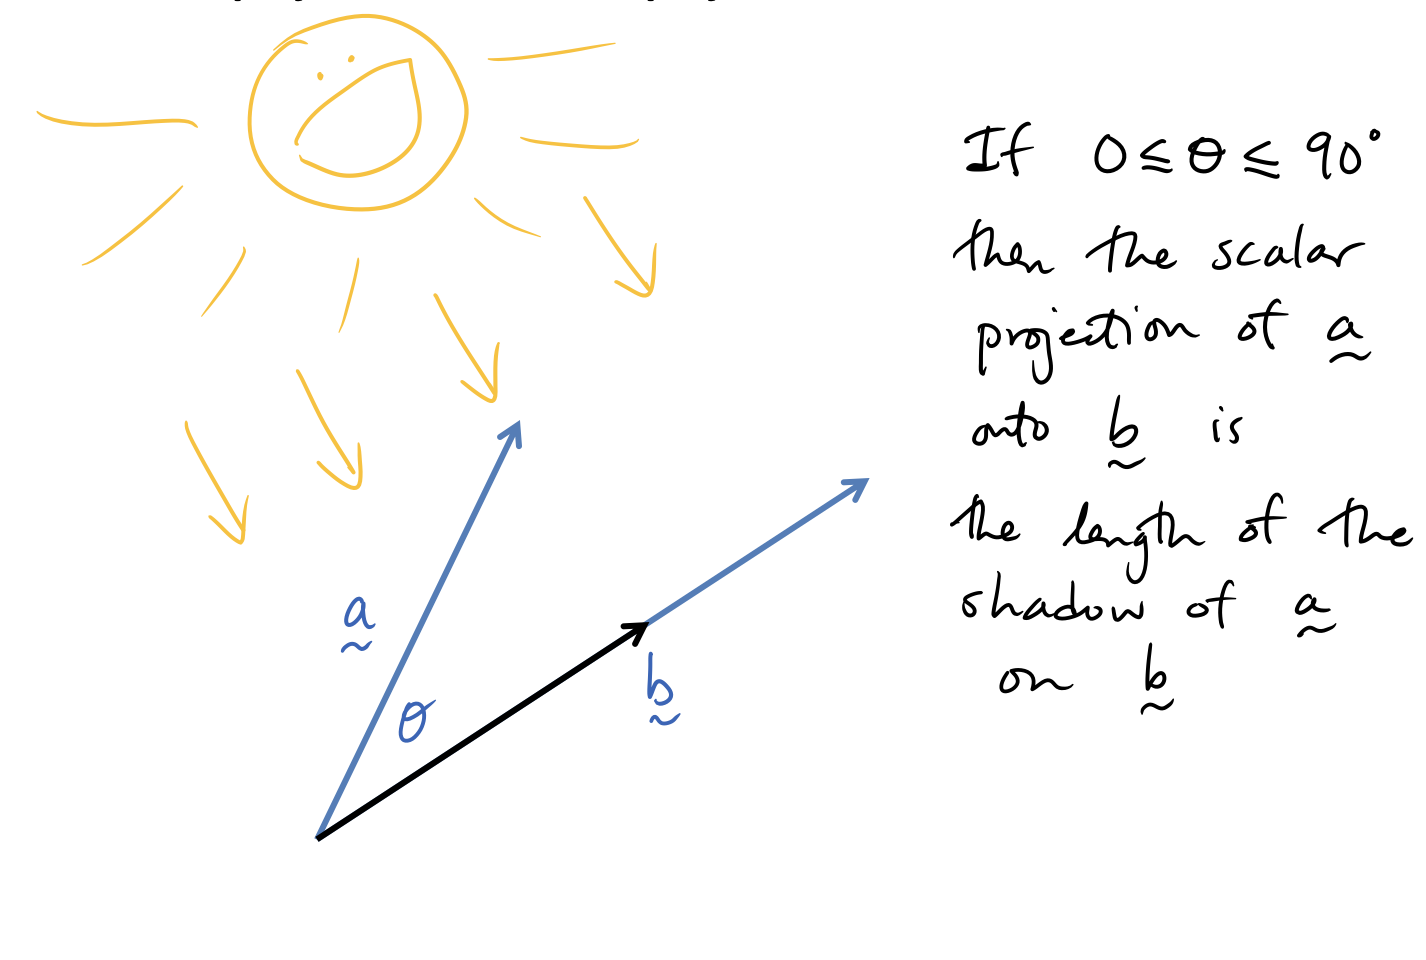 If 0 ≤ θ ≤ 90°
then the scalar
projection of a̰
onto b̰ is
the length of the
shadow of a̰
on b̰
a̰
θ
b̰